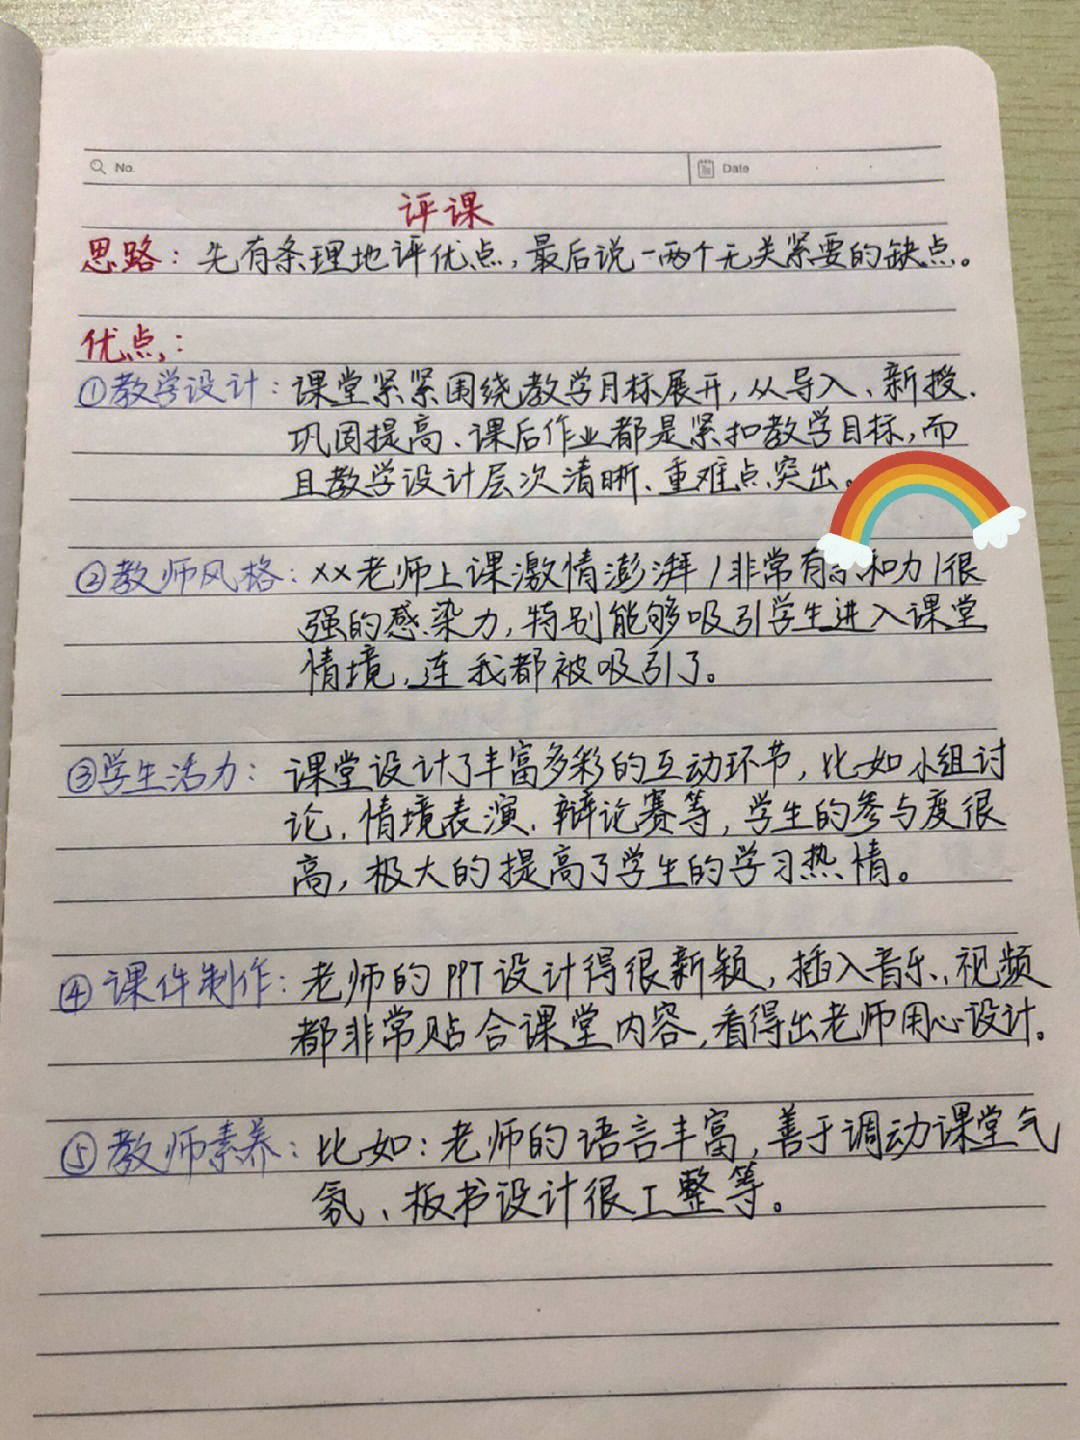 No.
Date
评课
思路：先有条理地评优点，最后说一两个无关紧要的缺点。
优点：
①教学设计：课堂紧紧围绕教学目标展开，从导入、新授、
巩固提高、课后作业都是紧扣教学目标，而
且教学设计层次清晰、重难点突出。
②教师风格：××老师上课激情澎湃/非常有亲和力/很
强的感染力，特别能够吸引学生进入课堂
情境，连我都被吸引了。
③学生活力：课堂设计了丰富多彩的互动环节，比如小组讨
论、情境表演、辩论赛等，学生的参与度很
高，极大的提高了学生的学习热情。
④课件制作：老师的PPT设计得很新颖，插入音乐、视频
都非常贴合课堂内容，看得出老师用心设计。
⑤教师素养：比如：老师的语言丰富，善于调动课堂气
氛、板书设计很工整等。